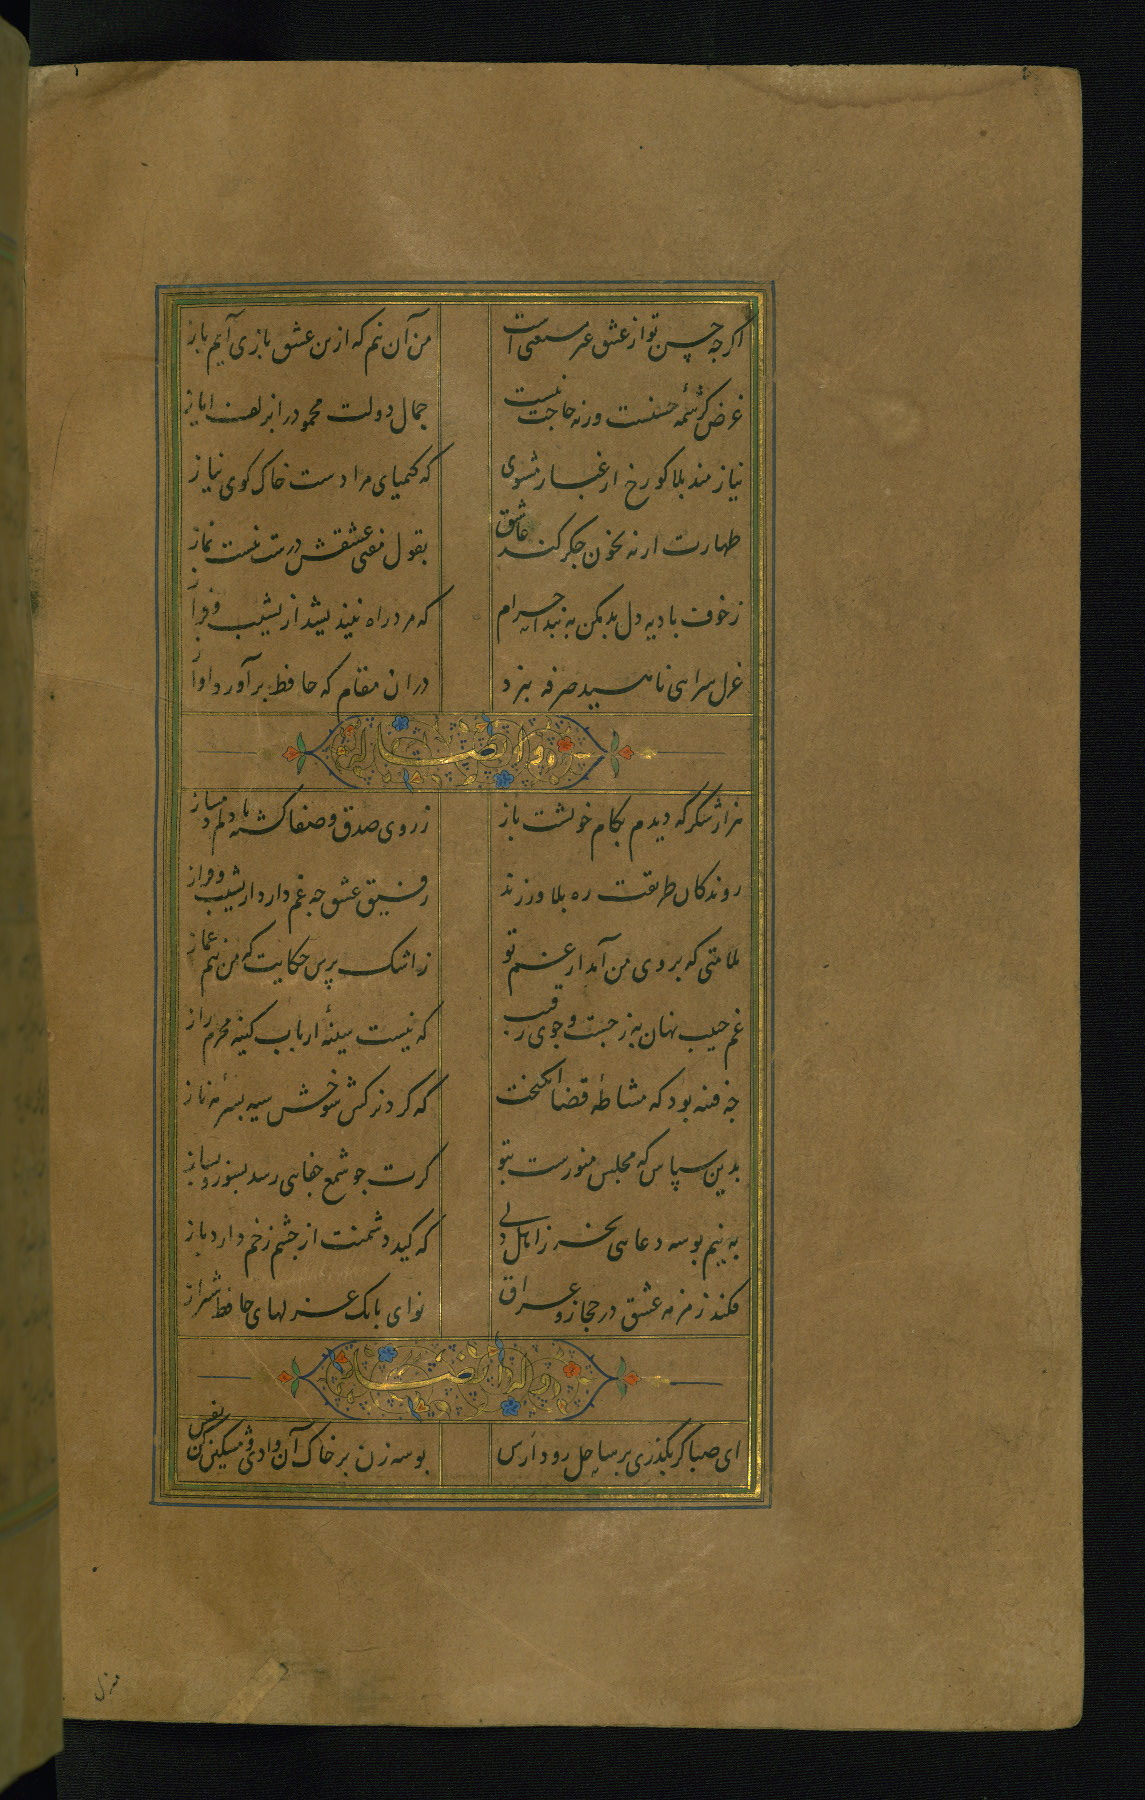 اگرچه حسن تو از عشق غیر مستغنی است من آن نیم که ازین عشق بازی آیم باز
غرض کرشمه حسنست ورنه حاجت نیست جمال دولت محمود را بزلف ایاز
نیازمند بلا کو رخ از غبار مشوی که کیمیای مرادست خاک کوی نیاز
طهارت ار نه بخون جکر کند عاشق بقول مفتی عشقش درست نیست نماز
ز خوف بادیه دل بد مکن به بند احرام که مرد راه نیندیشد از نشیب و فراز
غزل سرایی ناهید صرفه نبرد در ان مقام که حافظ برآورد اواز
و له ایضا
هزار شکر که دیدم بکام خویشت باز ز روی صدق و صفا کشته با دلم دمساز
روندکان طریقت ره بلا ورزند رفیق عشق چه غم دارد از نشیب و فراز
ملامتی که بروی من آمد از غم تو ز اشک پرس حکایت که من نیم غماز
غم حبیب نهان به ز جست و جوی رقیب که نیست سینهٔ ارباب کینه محرم راز
چه فتنه بود که مشاطهٔ قضا انکیخت که کرد نرکس شوخش سیه بسرمه ناز
بدین سپاس که مجلس منورست بتو کرت جو شمع جفایی رسد بسوز و بساز
به نیم بوسه دعایی بخر ز اهل دلی که کید دشمنت از جشم زخم دارد باز
فکند زمزمه عشق در حجاز و عراق نوای بانک غزلهای حافظ شیراز
و له ایضا
ای صبا کر بکذری بر ساحل رود ارس بوسه زن بر خاک آن وادی و مشکین کن نفس
منزل